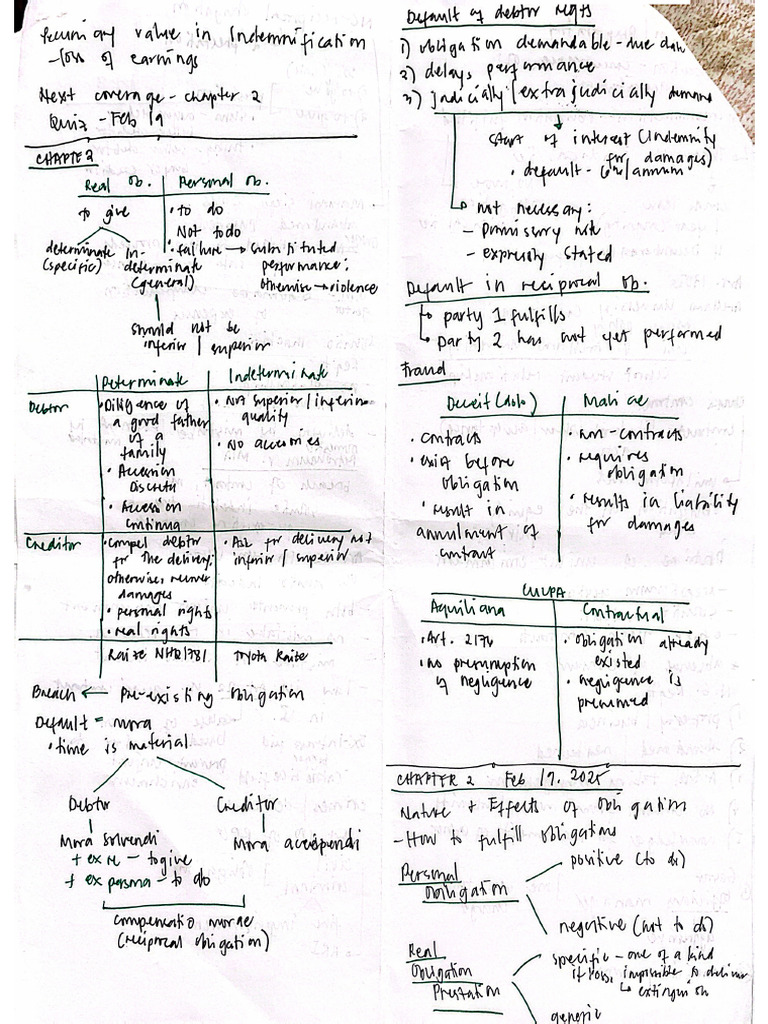 Pecuniary value in Indemnification
- loss of earnings
Next coverage - chapter 2
Quiz - Feb 19
CHAPTER 2
Real ob. Personal ob.
to give • to do
Not to do
determinate in- • failure → substituted
(specific) determinate performance;
(general) otherwise → violence
should not be
inferior / superior
Determinate Indeterminate
Debtor • Diligence of • Not superior / inferior
a good father quality
of a • No accesories
family
• Accession
Discreta
• Accession
continua
Creditor • Compel debtor • Ask for delivery not
for the delivery; inferior / superior
otherwise, recover
damages
• personal rights
• real rights
Raize NHQ1781. Toyota Raize
Breach ← Pre-existing obligation
Default = mora
• time is material
Debtor Creditor
Mora solvendi Mora accipiendi
+ ex re - to give
+ ex persona - to do
compensatio morae
(reciprocal obligation)
Default of debtor reqts
1) obligation demandable - due date
2) delays performance
3) judicially / extrajudicially demand
start of interest (indemnity
for damages)
• default - 6%/annum
not necessary:
- promissory note
- expressly stated
Default in reciprocal ob.
party 1 fulfills
party 2 has not yet performed
Fraud
Deceit (dolo) Malice
• contracts • non-contracts
• exist before • requires
obligation obligation
• result in • results in liability
annulment of for damages
contract
CULPA
Aquiliana Contractual
• Art. 2176 • obligation already
existed
• no presumption • negligence is
of negligence presumed
CHAPTER 2 Feb 17, 2025
Nature + Effects of obligation
- How to fulfill obligations
positive (to do)
Personal
obligation
negative (not to do)
Real specific - one of a kind
obligation if loss, impossible to deliver
Prestation ↳ extinguish
generic